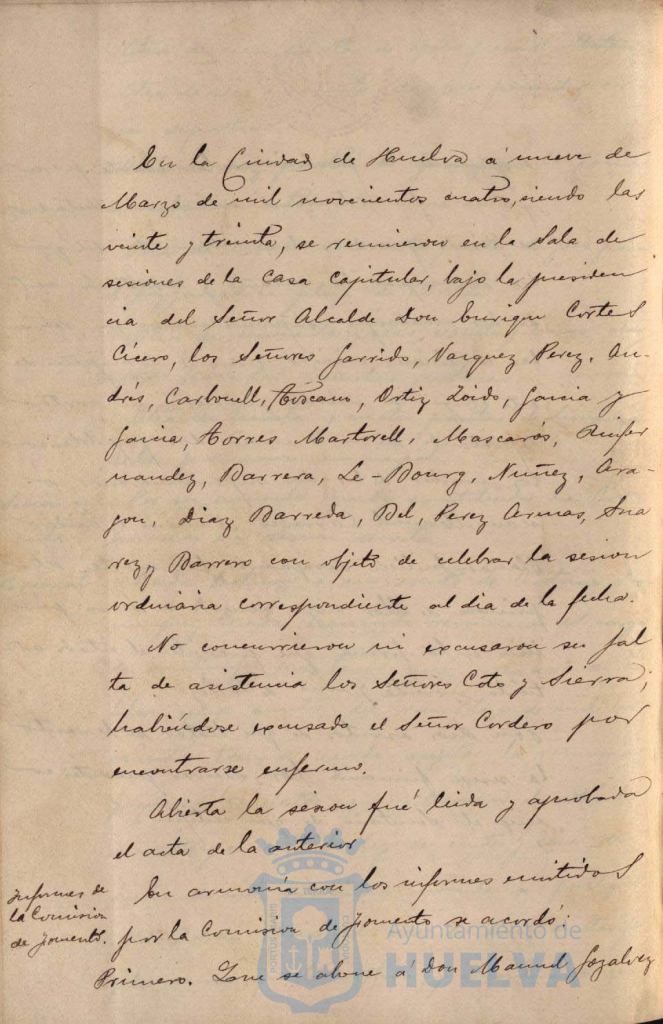 En la Ciudad de Huelva á nueve de
Marzo de mil novecientos cuatro, siendo las
veinte y treinta, se reunieron en la Sala de
sesiones de la Casa Capitular, bajo la presiden
cia del Señor Alcalde Don Enrique Cortes
Cícero, los Señores Garrido, Vazquez Perez, An-
drés, Carbonell, Toscano, Ortiz Zoido, Garcia y
Garcia, Torres Martorell, Mascarós,
nandez, Barrera, Le-Bourg, Nuñez, Ara-
gon, Diaz Barreda, Bel, Perez Armas, Sua
rez y Barrero con objeto de celebrar la sesion
ordinaria correspondiente al dia de la fecha.
No concurrieron ni excusaron su fal
ta de asistencia los Señores Coto y Sierra;
habiéndose excusado el Señor Cordero por
encontrarse enfermo.
Abierta la sesion fué leida y aprobada
el acta de la anterior
Informes de
la Comision
de Fomento.
En armonía con los informes emitidos
por la Comision de Fomento se acordó:
Primero. Que se abone á Don Manuel Gozalvez
Ayuntamiento de
HUELVA